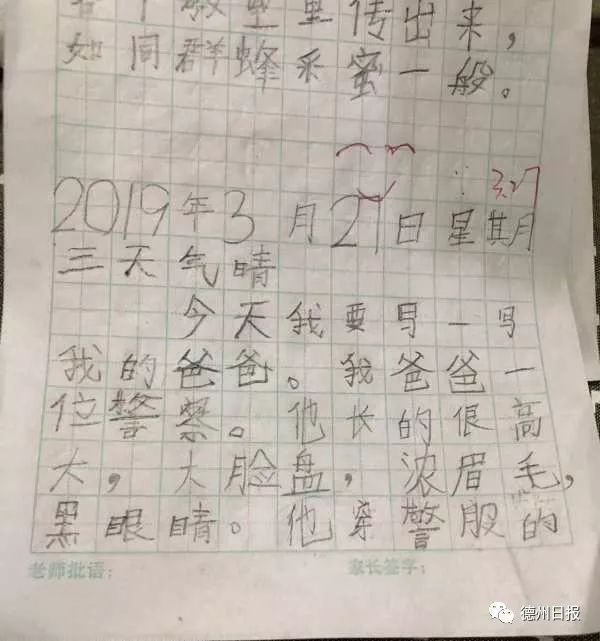 教室里传出来，
如同群蜂采蜜一般。
3.27
2019年3月27日星期
三天气晴
今天我要写一写
我的爸爸。我爸爸一
位警察。他长的很高
大，大脸盘，浓眉毛，
黑眼睛。他穿警服的
老师批语： 家长签字：
德州日报